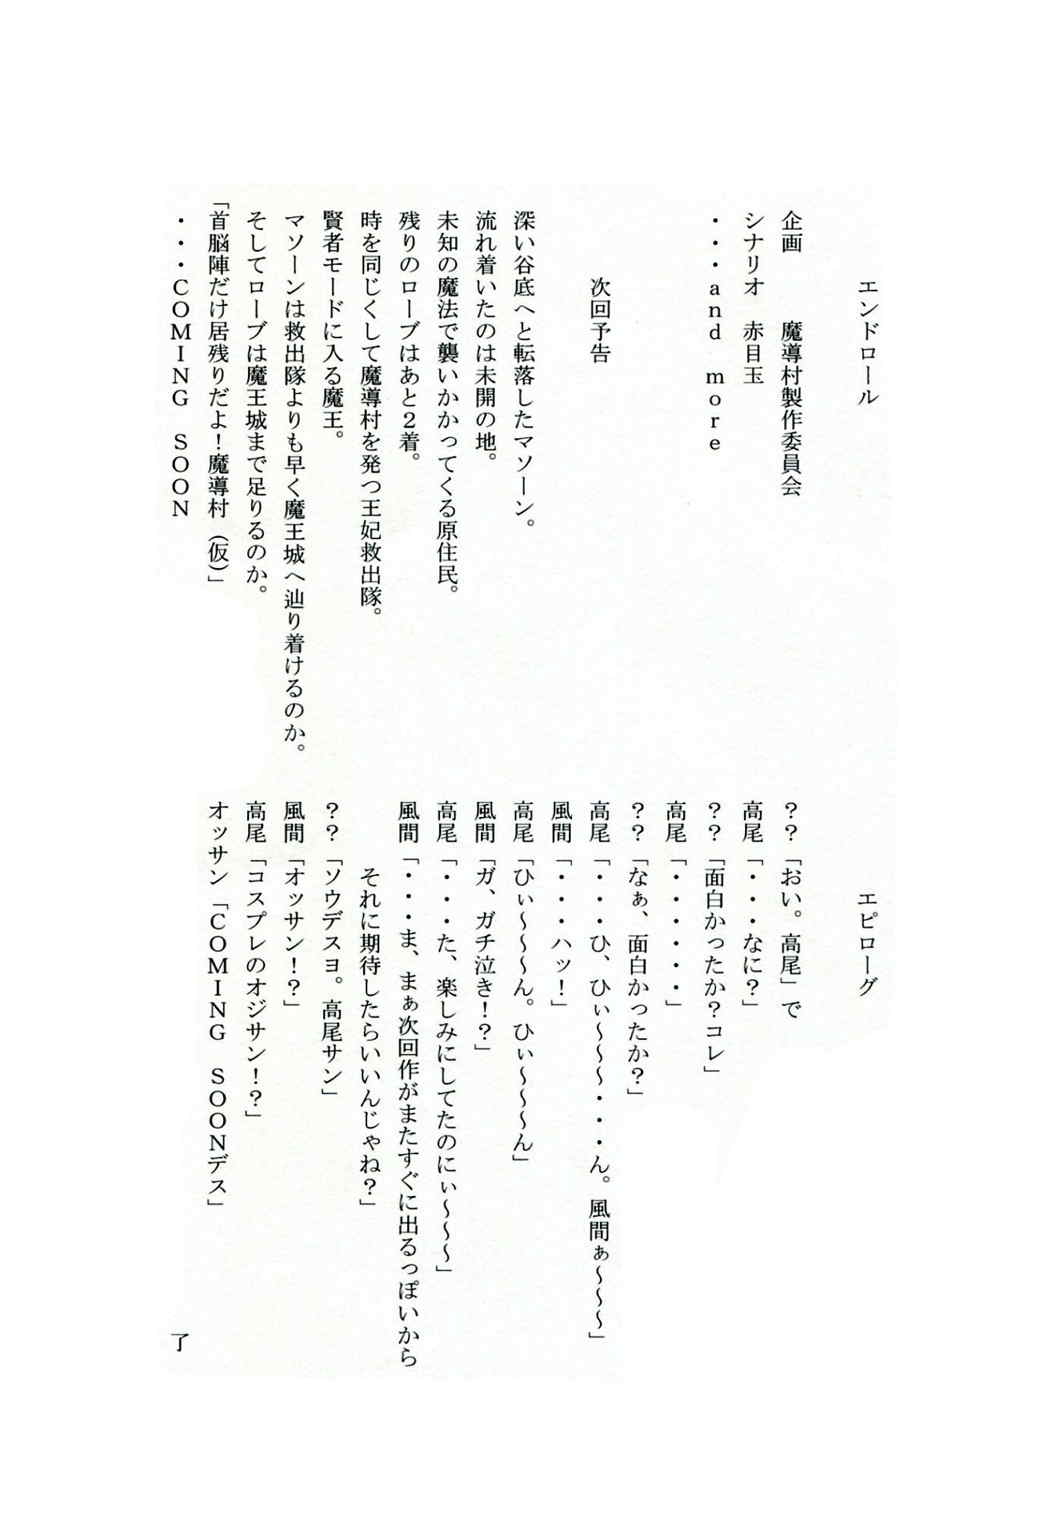 エンドロール
企画　　　魔導村製作委員会
シナリオ　赤目玉
・・・and　more
次回予告
深い谷底へと転落したマソーン。
流れ着いたのは未開の地。
未知の魔法で襲いかかってくる原住民。
残りのローブはあと２着。
時を同じくして魔導村を発つ王妃救出隊。
賢者モードに入る魔王。
マソーンは救出隊よりも早く魔王城へ辿り着けるのか。
そしてローブは魔王城まで足りるのか。
「首脳陣だけ居残りだよ！魔導村（仮）」
・・・COMING　SOON
エピローグ
？？「おい。高尾」で
高尾「・・・なに？」
？？「面白かったか？コレ」
高尾「・・・・・・」
？？「なぁ、面白かったか？」
高尾「・・・ひ、ひぃ～～～・・・ん。風間ぁ～～～」
風間「・・・ハッ！」
高尾「ひぃ～～～ん。ひぃ～～～ん」
風間「ガ、ガチ泣き！？」
高尾「・・・た、楽しみにしてたのにぃ～～～」
風間「・・・ま、まぁ次回作がまたすぐに出るっぽいから
それに期待したらいいんじゃね？」
？？「ソウデスヨ。高尾サン」
風間「オッサン！？」
高尾「コスプレのオジサン！？」
オッサン「COMING　SOONデス」
了